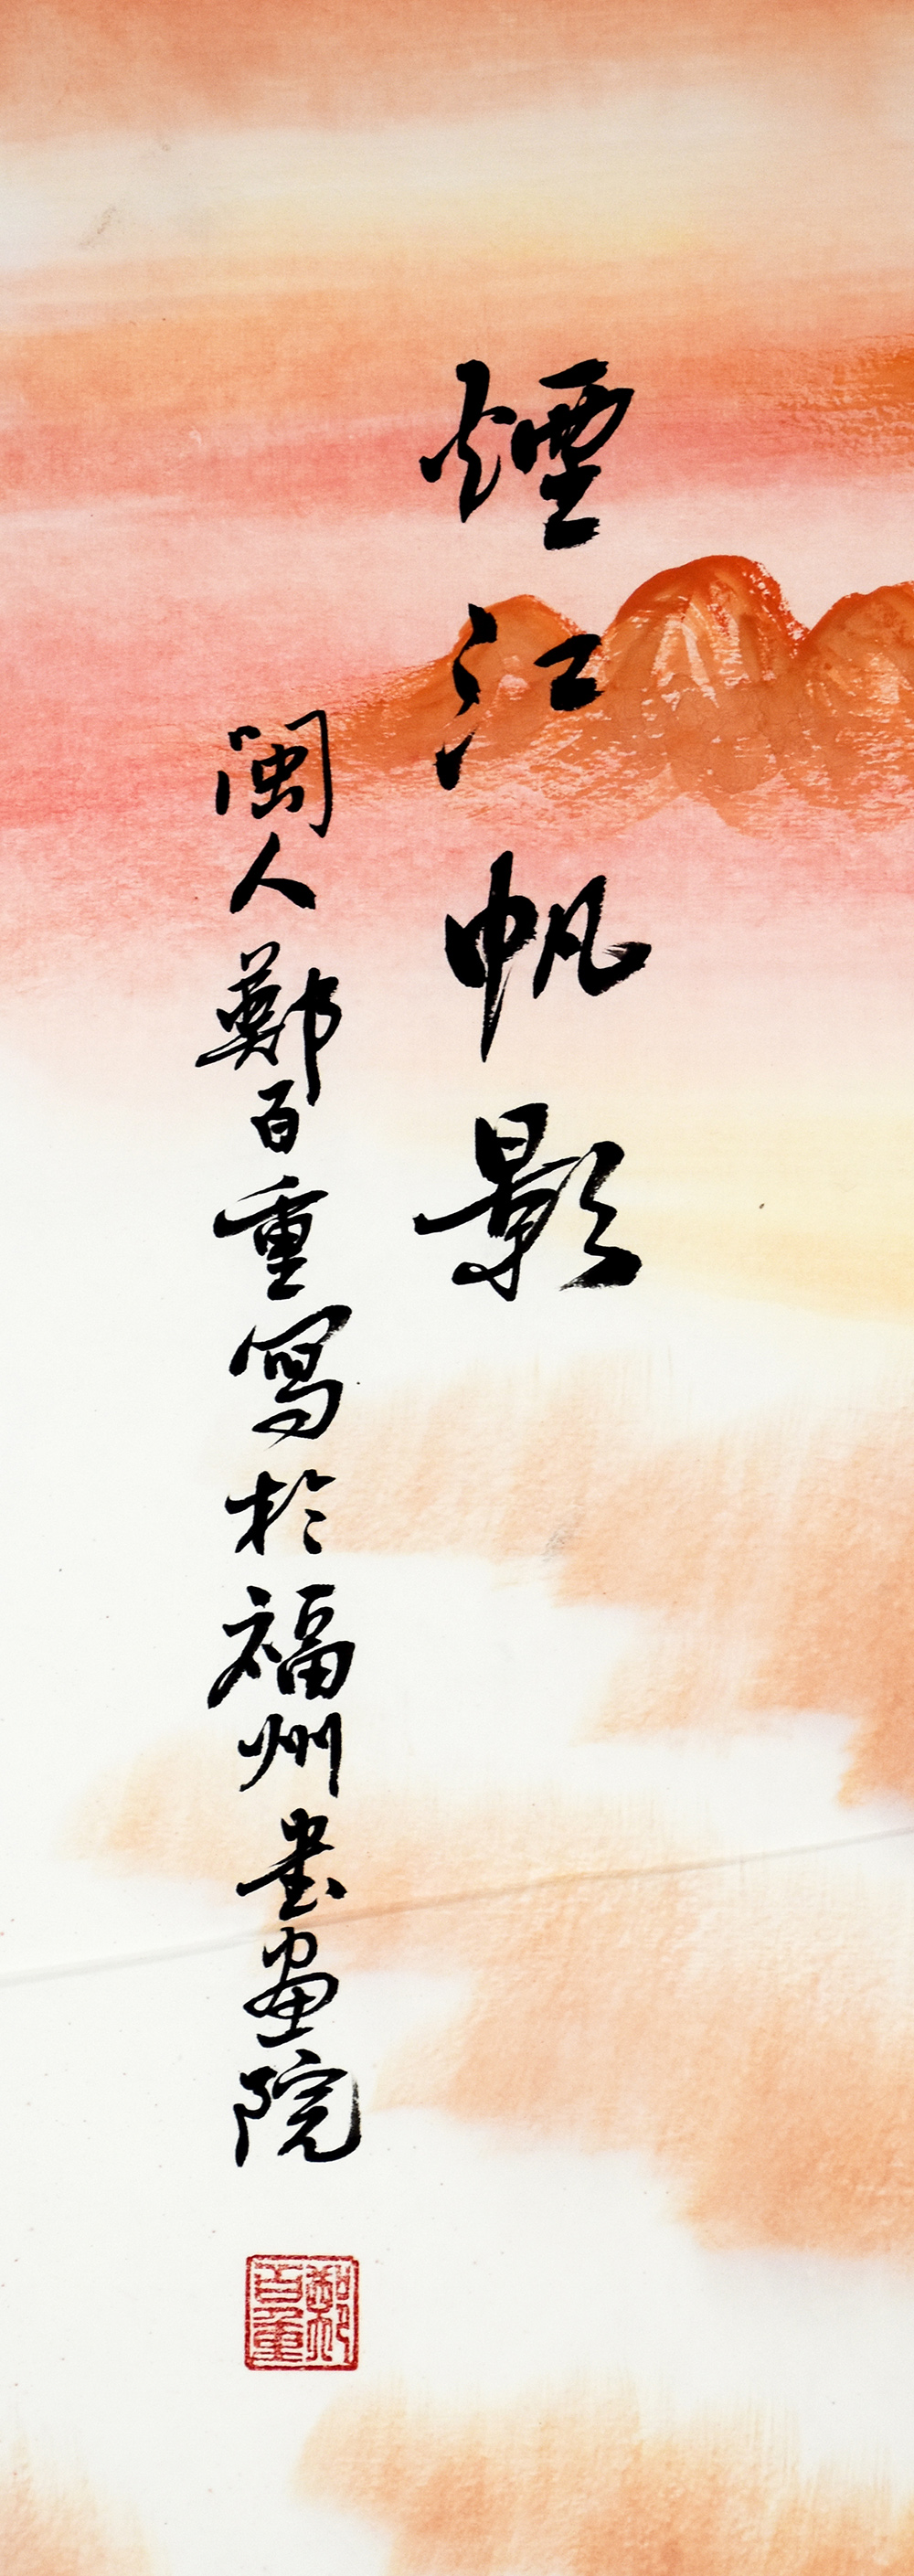 煙江帆影
閩人鄭百重寫於福州書畫院
鄭百重